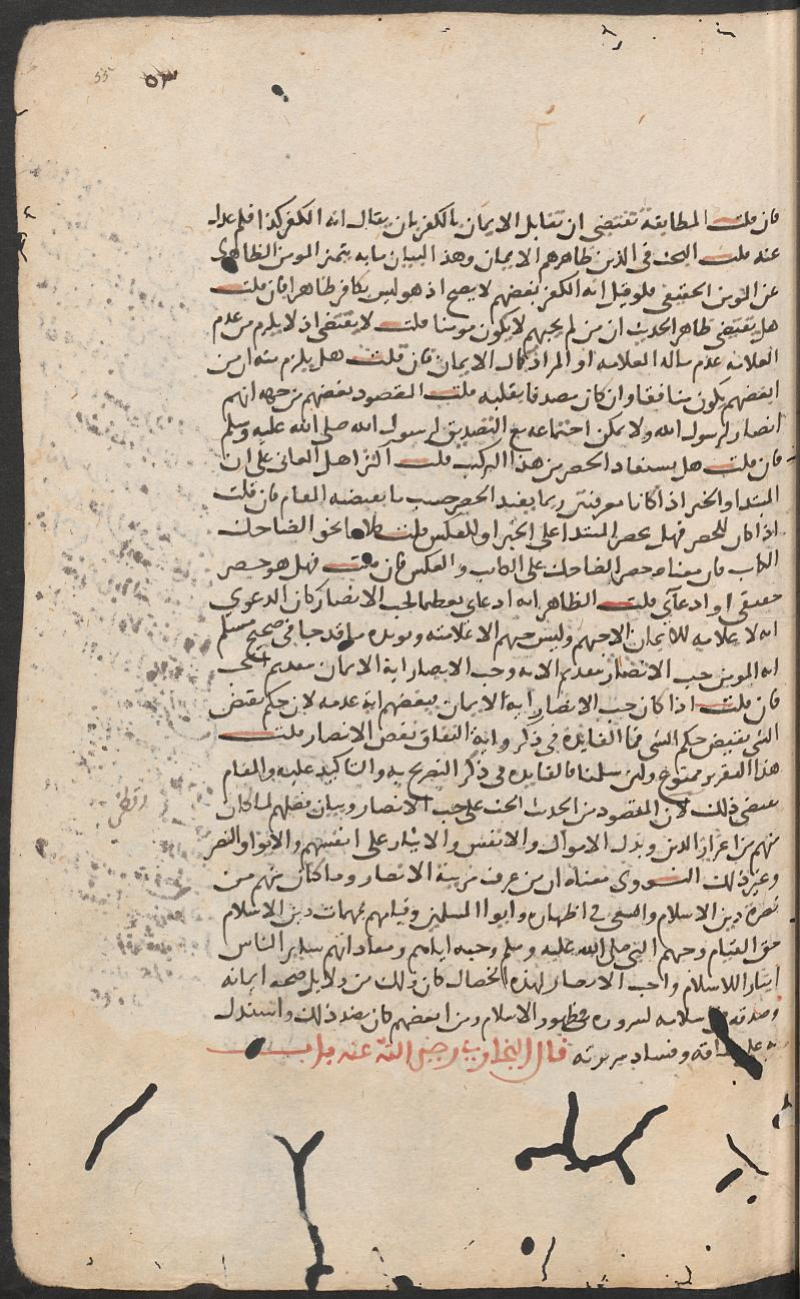 ٥٣ 55
فان قلت المطابقة تقتضي ان تقابل الايمان بالكفر بان يقال انه الكفر كذا فلم عدل
عنه قلت البحث في الذين ظاهرهم الايمان وهذا البيان ما به يتميز المومن الظاهري
عن المومن الحقيقي فلو قيل انه الكفر بغضهم لا يصح اذ هو ليس بكافر ظاهرا فان قلت
هل يقتضي ظاهر الحديث ان من لم يحبهم لا يكون مومنا قلت لا يقتضي اذ لا يلزم من عدم
العلامه عدم ماله العلامه او المراد كمال الايمان فان قلت هل يلزم منه ان من
ابغضهم يكون منافقا وان كان مصدقا بقلبه قلت المقصود بغضهم من جهه انهم
انصار لرسول الله ولا يمكن اجتماعه مع التصديق لرسول الله صلى الله عليه وسلم
فان قلت هل يستفاد الحصر من هذا التركيب قلت اكثر اهل المعاني على ان
المبتدا والخبر اذا كانا معرفتين ربما يفيد الحصر حسب ما يقتضيه المقام فان قلت
اذا كان للحصر فهل يحصر المبتدا على الخبر او للعكس قلت كلاهما نحو الضاحك
الكاتب فان معناه حصر الضاحك على الكاتب والعكس فان قلت فهل هو حصر
حقيقي او ادعآي قلت الظاهر انه ادعاي تعظيما لحب الانصار كان الدعوي
انه لا علامه للايمان الا حبهم وليس حبهم الا علامته ويويده ما قد جا في صحيح مسلم
اية المومن حب الانصار بتقديم الايه وحب الانصار اية الايمان بتقديم الحب
فان قلت اذا كان حب الانصار اية الايمان فبغضهم اية عدمه لان حكم نقيض
الشي نقيض حكم الشي فما الفايده في ذكر واية النفاق بغض الانصار قلت
هذا التقرير ممنوع ولئن سلمنا فالفايده في ذكر التصريح به والتاكيد عليه والمقام
يقتضي ذلك لان المقصود من الحديث الحث على حب الانصار وبيان فضلهم لما كان
منهم من اعزاز الدين وبذل الاموال والانفس والايثار على انفسهم والايوا والنصر
وغير ذلك النووى معناه ان من عرف مرتبة الانصار وما كان منهم من
نصرة دين الاسلام والسعي في اظهاره وايوا المسلمين وقيامهم بمهمات دين الاسلام
حق القيام وحبهم النبي صلى الله عليه وسلم وحبه اياهم ومعاداتهم ساير الناس
ايثارا للاسلام واحب الانصار لهذه الخصال كان ذلك من دلايل صحه ايمانه
وصدقه في اسلامه لسروره بظهور الاسلام ومن ابغضهم كان بضد ذلك واستدل
به على نفاقه وفساد سريرته قال البخاري رضي الله عنه باب